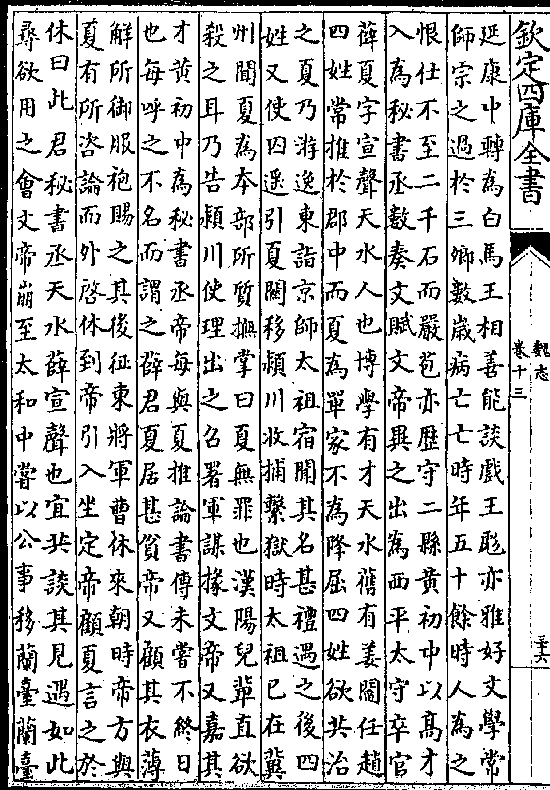 欽定四庫全書
魏志
卷十三
三十六
延康中轉為白馬王相善能談戲王彪亦雅好文學常
師宗之過於三卿數歲病亡亡時年五十餘時人為之
恨仕不至二千石而嚴苞亦歴守二縣黄初中以髙才
入為秘書丞數奏文賦文帝異之出為西平太守卒官
薛夏字宣聲天水人也博學有才天水舊有姜閻任趙
四姓常推於郡中而夏為單家不為降屈四姓欲共治
之夏乃游逸東詣京師太祖宿聞其名甚禮遇之後四
姓又使囚遥引夏關移潁川收捕繫獄時太祖已在冀
州聞夏為本部所質撫掌曰夏無罪也漢陽兒輩直欲
殺之耳乃告潁川使理出之召署軍謀掾文帝又嘉其
才黄初中為秘書丞帝每與夏推論書傳未嘗不終日
也每呼之不名而謂之薛君夏居甚貧帝又顧其衣薄
解所御服袍賜之其後征東將軍曹休來朝時帝方與
夏有所咨論而外啓休到帝引入坐定帝顧夏言之於
休曰此君秘書丞天水薛宣聲也宜共談其見遇如此
尋欲用之會文帝崩至太和中嘗以公事移蘭臺蘭臺